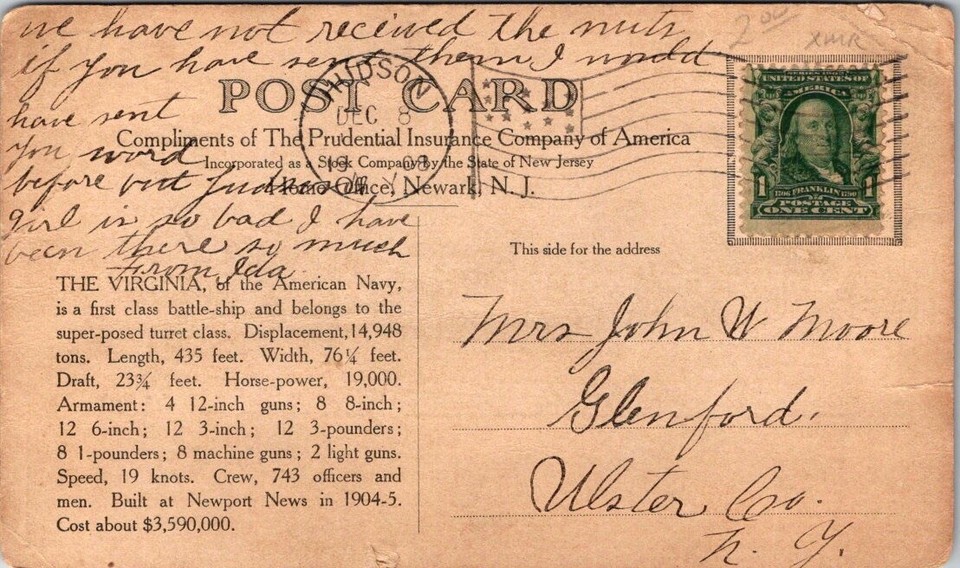 we have not received the nuts
if you have sent them I would
have sent
you word
before but
girl is so bad I have
been there so much
from Ida
2.00
XMR
POST CARD
Compliments of The Prudential Insurance Company of America
Incorporated as a Stock Company by the State of New Jersey
Home Office, Newark, N. J.
HUDSON
DEC 8
N.Y.
UNITED STATES OF
AMERICA
1 FRANKLIN 1
POSTAGE
ONE CENT
This side for the address
THE VIRGINIA, of the American Navy,
is a first class battle-ship and belongs to the
super-posed turret class. Displacement, 14,948
tons. Length, 435 feet. Width, 76¼ feet.
Draft, 23¾ feet. Horse-power, 19,000.
Armament: 4 12-inch guns; 8 8-inch;
12 6-inch; 12 3-inch; 12 3-pounders;
8 1-pounders; 8 machine guns; 2 light guns.
Speed, 19 knots. Crew, 743 officers and
men. Built at Newport News in 1904-5.
Cost about $3,590,000.
Mrs John W Moore
Glenford.
Ulster Co.
N. Y.